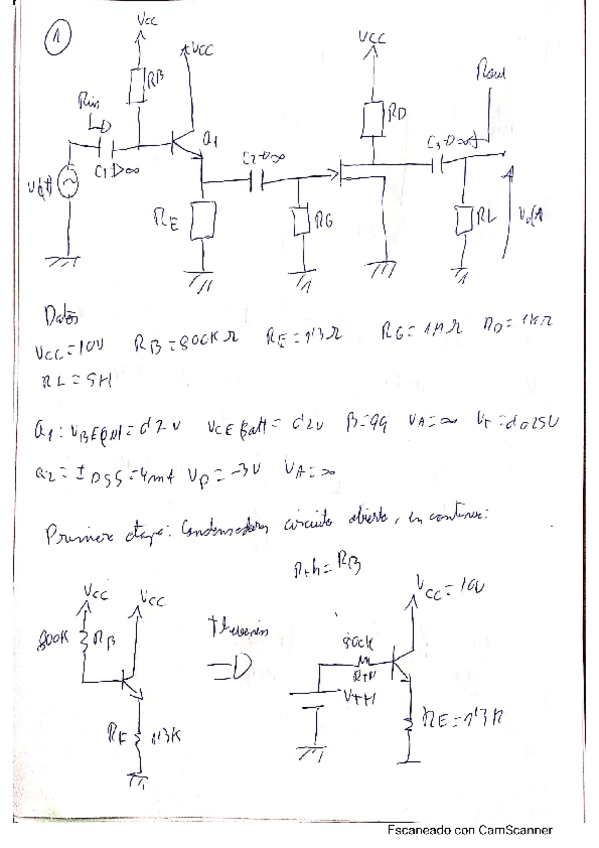 1
VCC
VCC
VCC
RB
RD
Rout
Rin
Q1
C1→∞
C2→∞
C3→∞
RE
RG
RL
Datos
VCC=10V RB=800KΩ RE=1'3Ω RG=1MΩ RD=1KΩ
RL=5H
Q1: VBE(on)=0'7V VCE(sat)=0'2V β=99 VA=∞ VT=0'025V
Q2= IDSS=4mA VP=-3V VA=∞
Primera etapa: Condensadores circuito abierto, en continua:
Rth=RB
VCC VCC
VCC=10V
800K RB
Thevenin
80CK
RTH
VTH
RE 1'3K
RE=1'3K
Escaneado con CamScanner